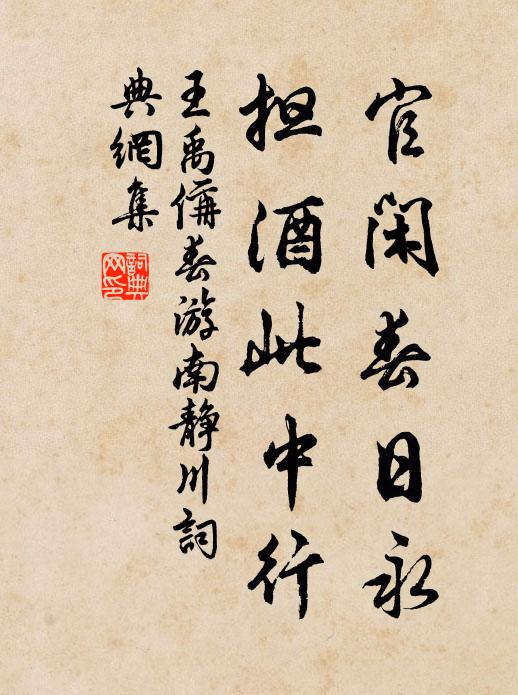 官闲春日永
担酒此中行
王禹偁春游南静川詞
典網集
詞典网印